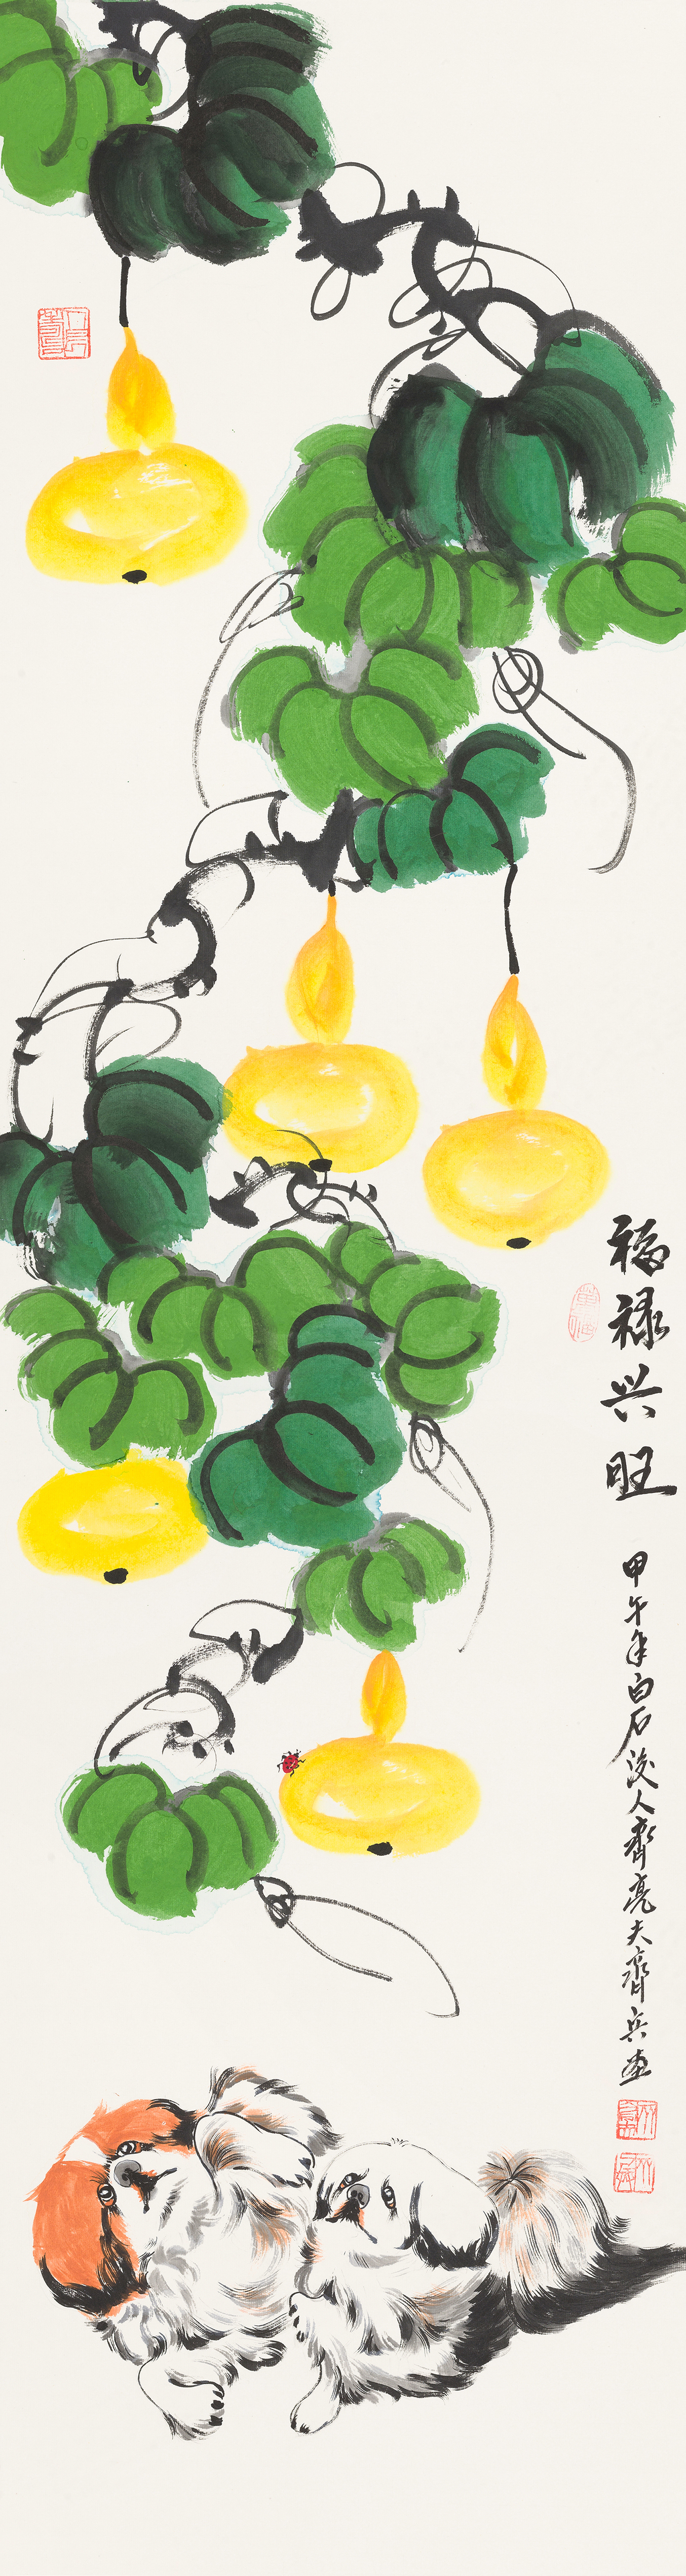 福禄兴旺
甲午年白石後人齊亮夫齊兵画